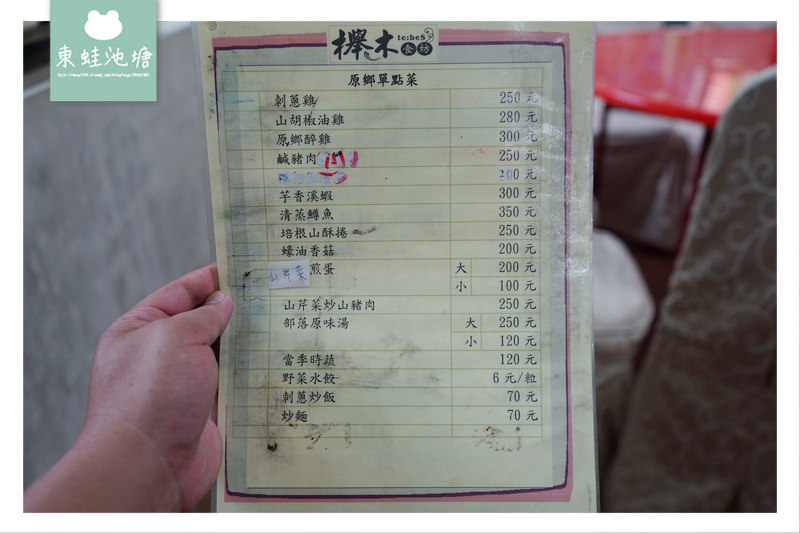 東蛙池塘
櫸木
te:beS
食坊
原鄉單點菜
刺蔥雞 250 元
山胡椒油雞 280 元
原鄉醉雞 300 元
鹹豬肉 250 元
00 元
芋香溪蝦 300 元
清蒸鱒魚 350 元
培根山酥捲 250 元
蠔油香菇 200 元
山芹菜煎蛋 大 200 元
小 100 元
山芹菜炒山豬肉 250 元
部落原味湯 大 250 元
小 120 元
當季時蔬 120 元
野菜水餃 6 元/粒
刺蔥炒飯 70 元
炒麵 70 元